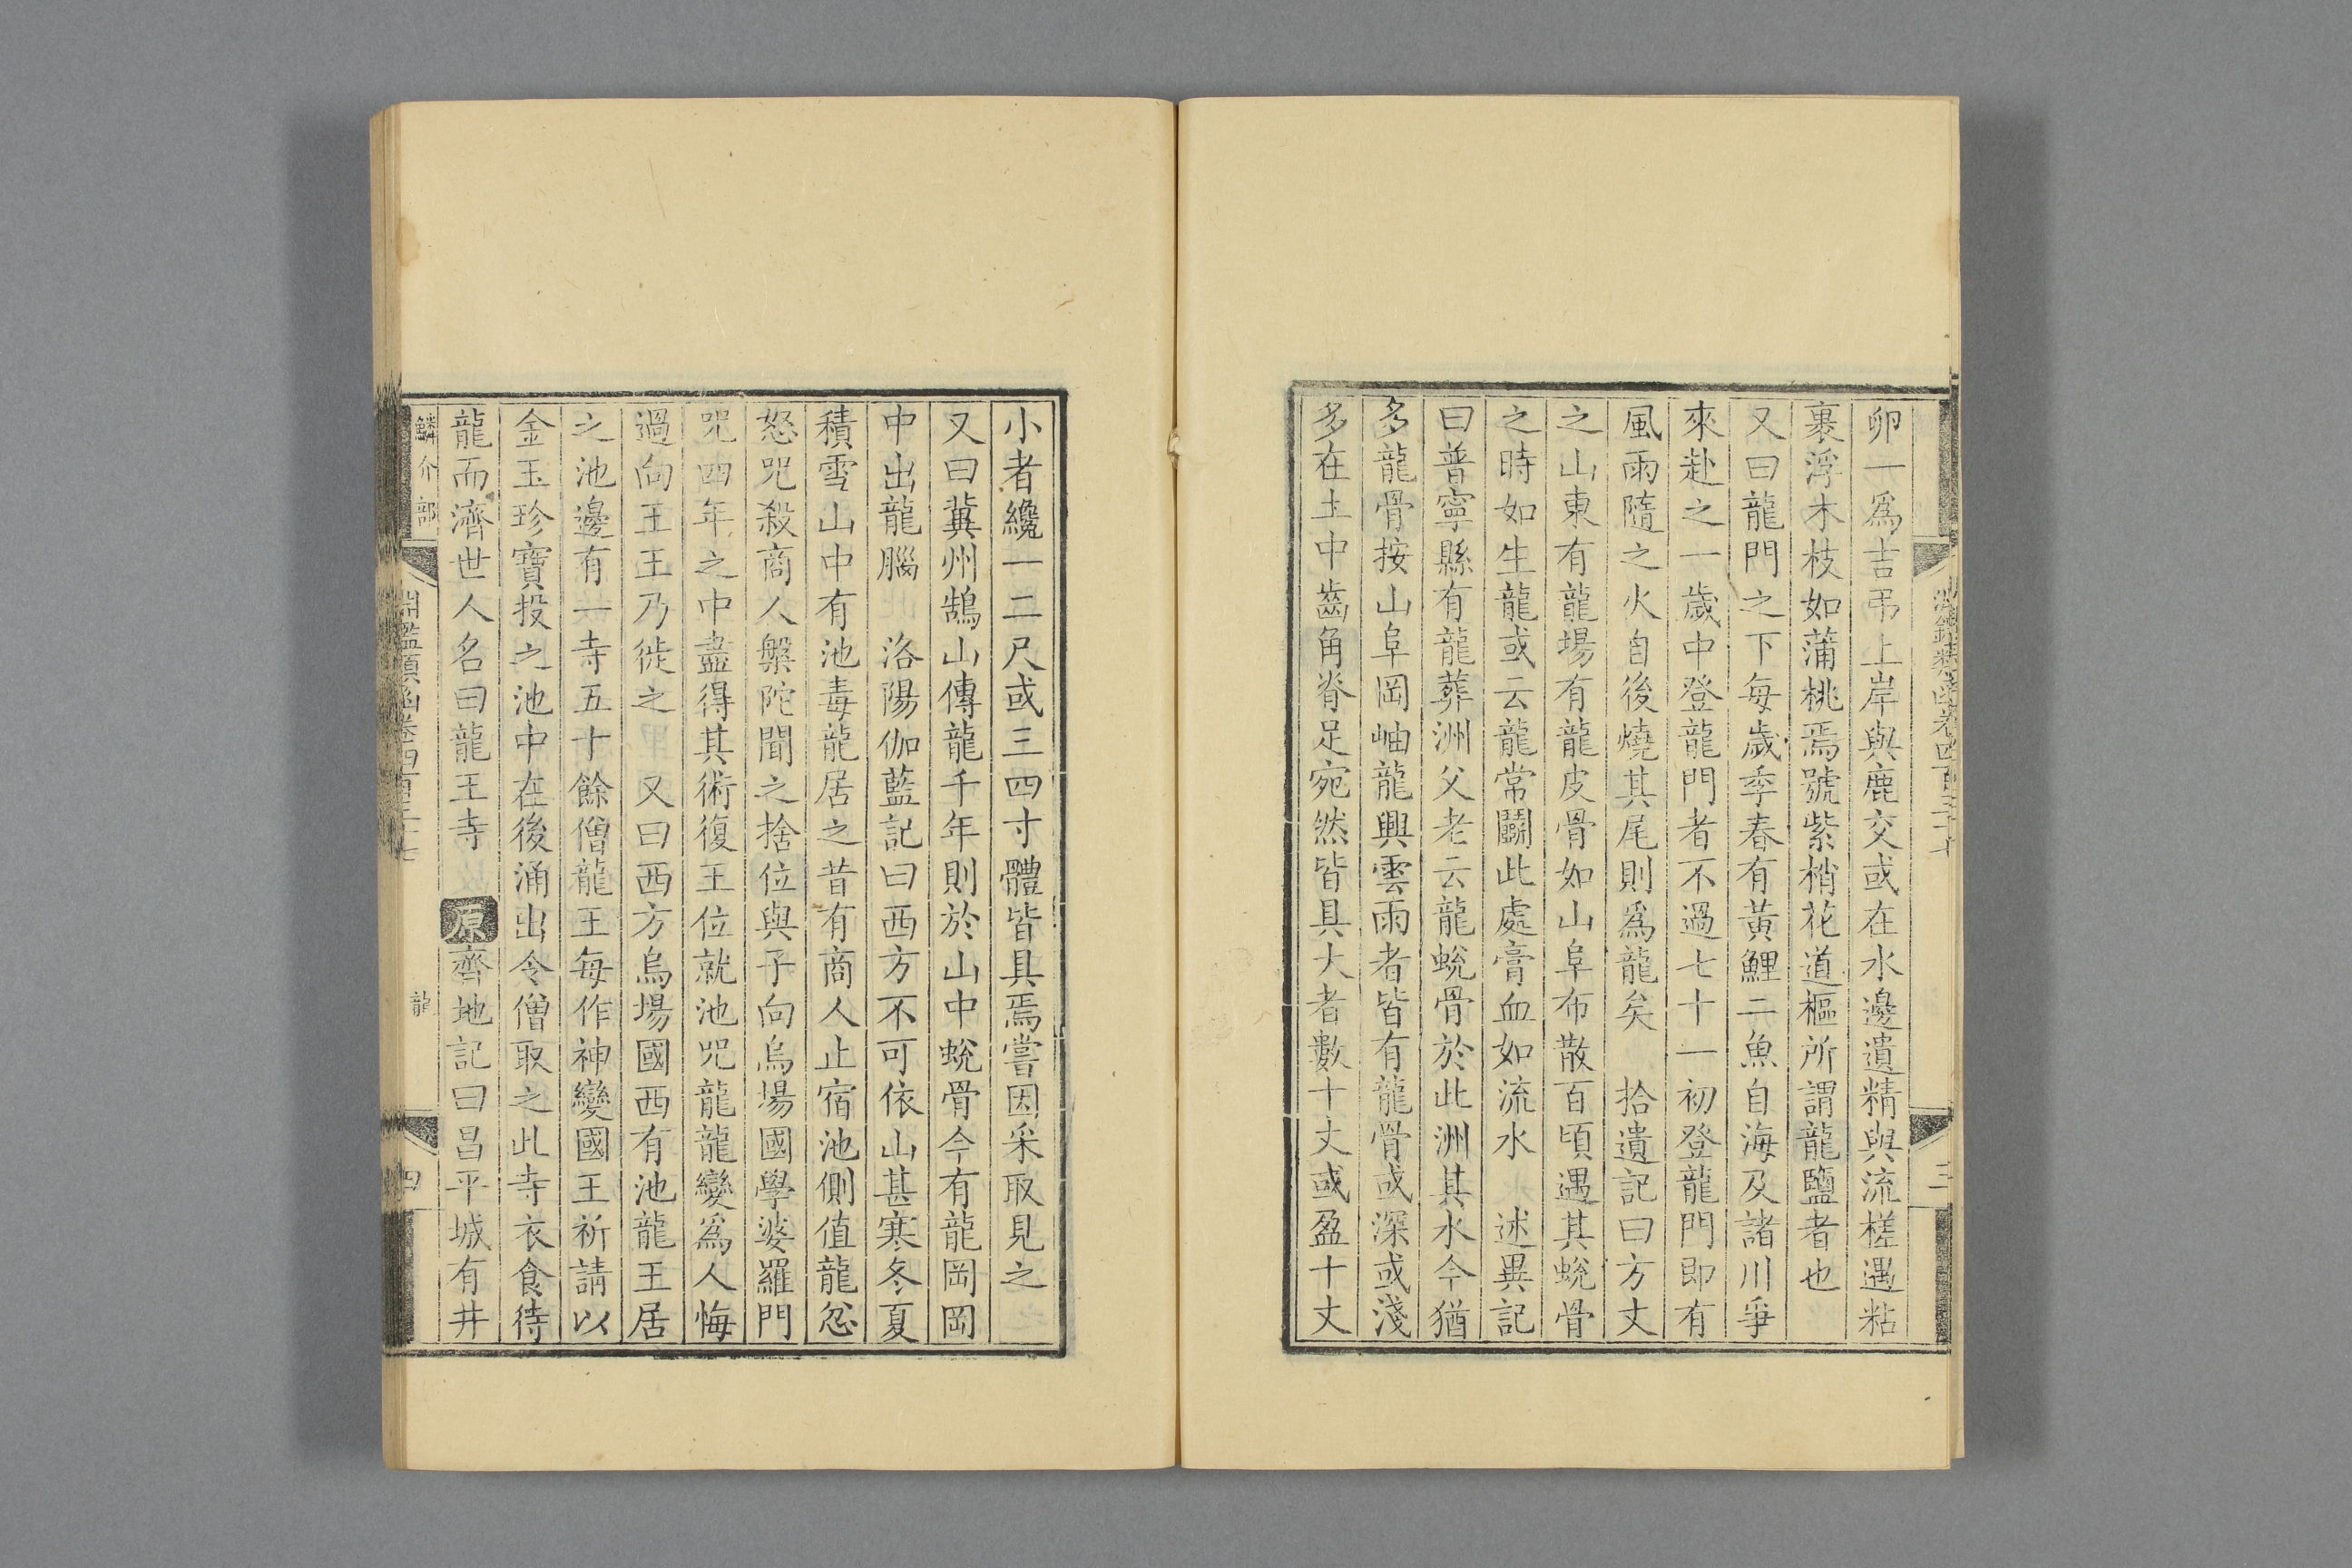 卵一爲吉弔上岸與鹿交或在水邊遺精與流槎遇粘
裹浮木枝如蒲桃焉號紫梢花道樞所謂龍鹽者也
又曰龍門之下每歲季春有黃鯉二魚自海及諸川爭
來赴之一歲中登龍門者不過七十一初登龍門即有
風雨隨之火自後燒其尾則爲龍矣　拾遺記曰方丈
之山東有龍場有龍皮骨如山阜布散百頃遇其蛻骨
之時如生龍或云龍常鬭此處膏血如流水　述異記
曰普寧縣有龍葬洲父老云龍蛻骨於此洲其水今猶
多龍骨按山阜岡岫龍興雲雨者皆有龍骨或深或淺
多在土中齒角脊足宛然皆具大者數十丈或盈十丈
小者纔一二尺或三四寸體皆具焉嘗因采取見之
又曰冀州鵠山傳龍千年則於山中蛻骨今有龍岡岡
中出龍腦　洛陽伽藍記曰西方不可依山甚寒冬夏
積雪山中有池毒龍居之昔有商人止宿池側值龍忿
怒咒殺商人槃陀聞之捨位與子向烏場國學婆羅門
咒四年之中盡得其術復王位就池咒龍龍變爲人悔
過向王王乃徙之　又曰西方烏場國西有池龍王居
之池邊有一寺五十餘僧龍王每作神變國王祈請以
金玉珍寶投之池中在後涌出令僧取之此寺衣食待
龍而濟世人名曰龍王寺　原齊地記曰昌平城有井
鱗介部　淵鑑類函卷四百三十七　龍　四